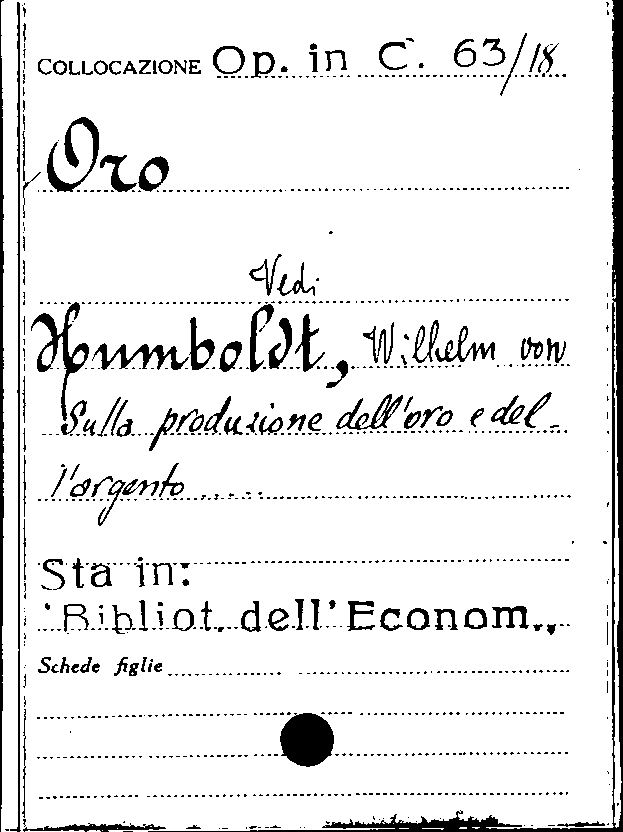 COLLOCAZIONE Op. in C. 63/18
Oro
Vedi
Humboldt, Wilhelm von
Sulla produzione dell'oro e del-
l'argento .....
Sta in:
'Bibliot. dell'Econom.,
Schede figlie